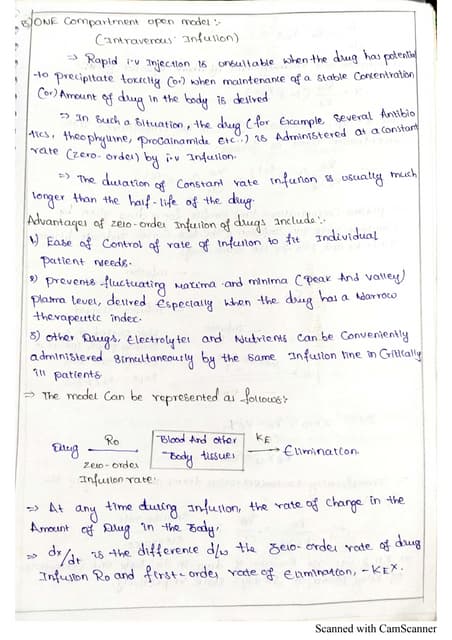 B) ONE Compartment open model :-
(Intravenous Infusion)
⇒ Rapid i.v Injection is unsuitable when the drug has potential
-to precipitate toxicity (or) when maintenance of a stable Concentration
(or) Amount of drug in the body is desired
⇒ In Such a Situation, the drug (for Example several Antibio
tics, theophylline, procainamide Etc..) is Administered at a constant
rate (zero-order) by i.v Infusion.
⇒ The duration of Constant rate infusion is usually much
longer than the half-life of the drug.
Advantages of zero-order Infusion of drugs include :-
1) Ease of Control of rate of infusion to fit Individual
patient needs.
2) prevents fluctuating Maxima and minima (peak And valley)
plasma level, desired Especially when the drug has a Narrow
therapeutic index.
3) other Drugs, Electrolytes and Nutrients Can be Conveniently
administered Simultaneously by the same Infusion line in Critically
ill patients
⇒ The model Can be represented as follows:-
Drug Ro Blood And other Body tissues KE → Elimination
Zero-order
Infusion rate.
⇒ At any time during Infusion, the rate of change in the
Amount of Drug in the Body,
⇒ dx/dt is the difference b/w the zero-order rate of drug
Infusion Ro and first-order rate of Elimination, -KEX.
Scanned with CamScanner